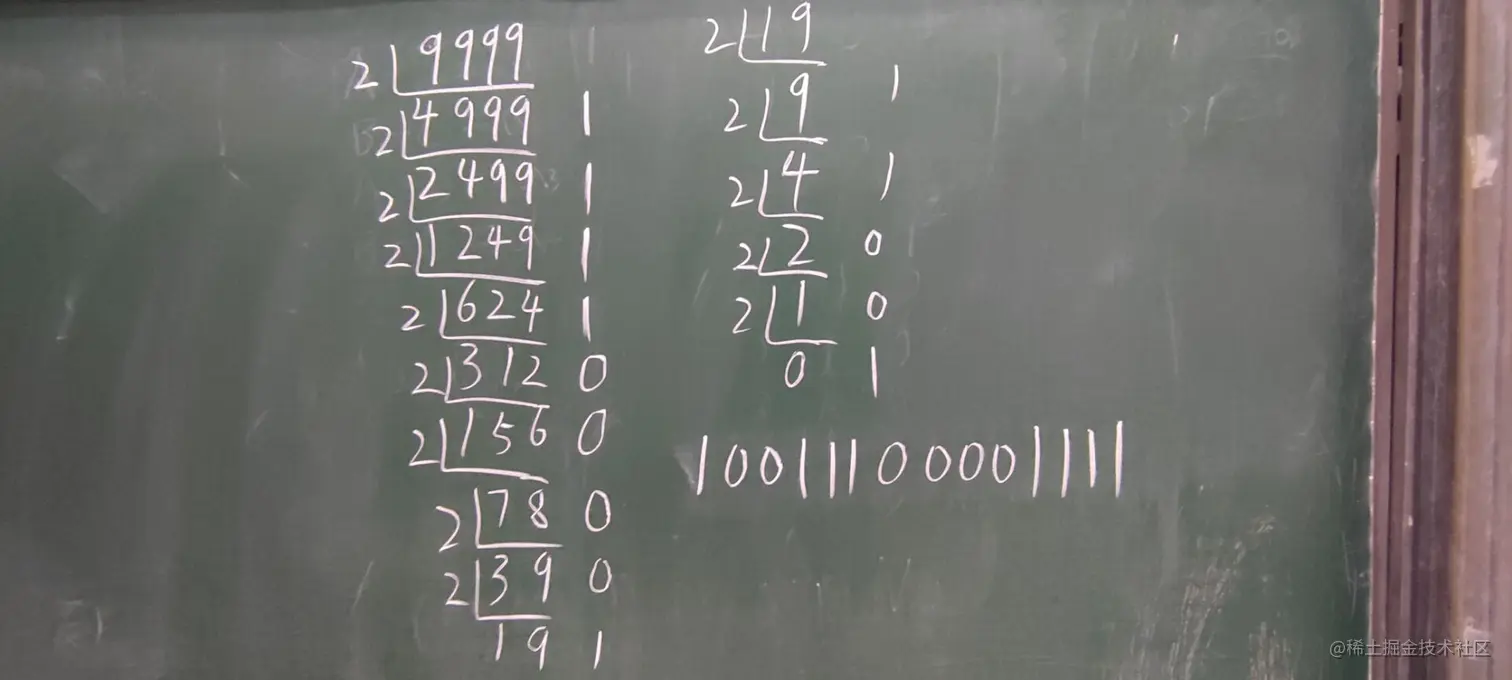 2 9999
2 4999 1
2 2499 1
2 1249 1
2 624 1
2 312 0
2 156 0
2 78 0
2 39 0
19 1
2 19
2 9 1
2 4 1
2 2 0
2 1 0
0 1
10011100001111
@稀土掘金技术社区